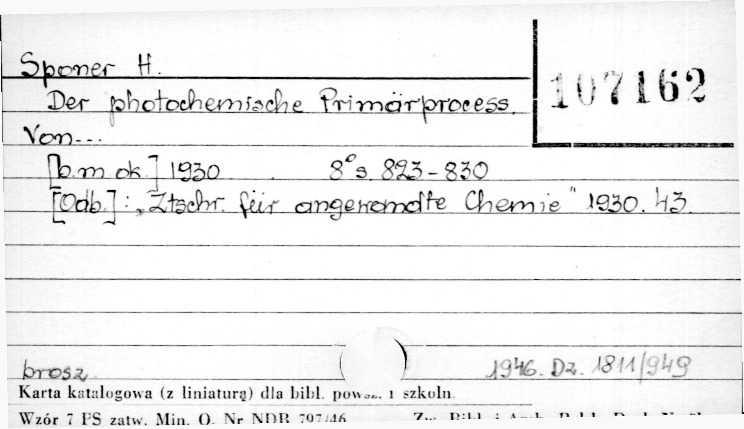 Sponer H.
107162
Der photochemische Primärprocess.
Von...
[b.m ok.] 1930 8° s. 823-830
[Odb.]: „Ztschr. für angewandte Chemie" 1930. 43.
brosz. 1946. Dz. 1811/949
Karta katalogowa (z liniaturą) dla bibl. i szkoln.
Wzór 7 PS zatw. Min. O. Nr NDB 797/46